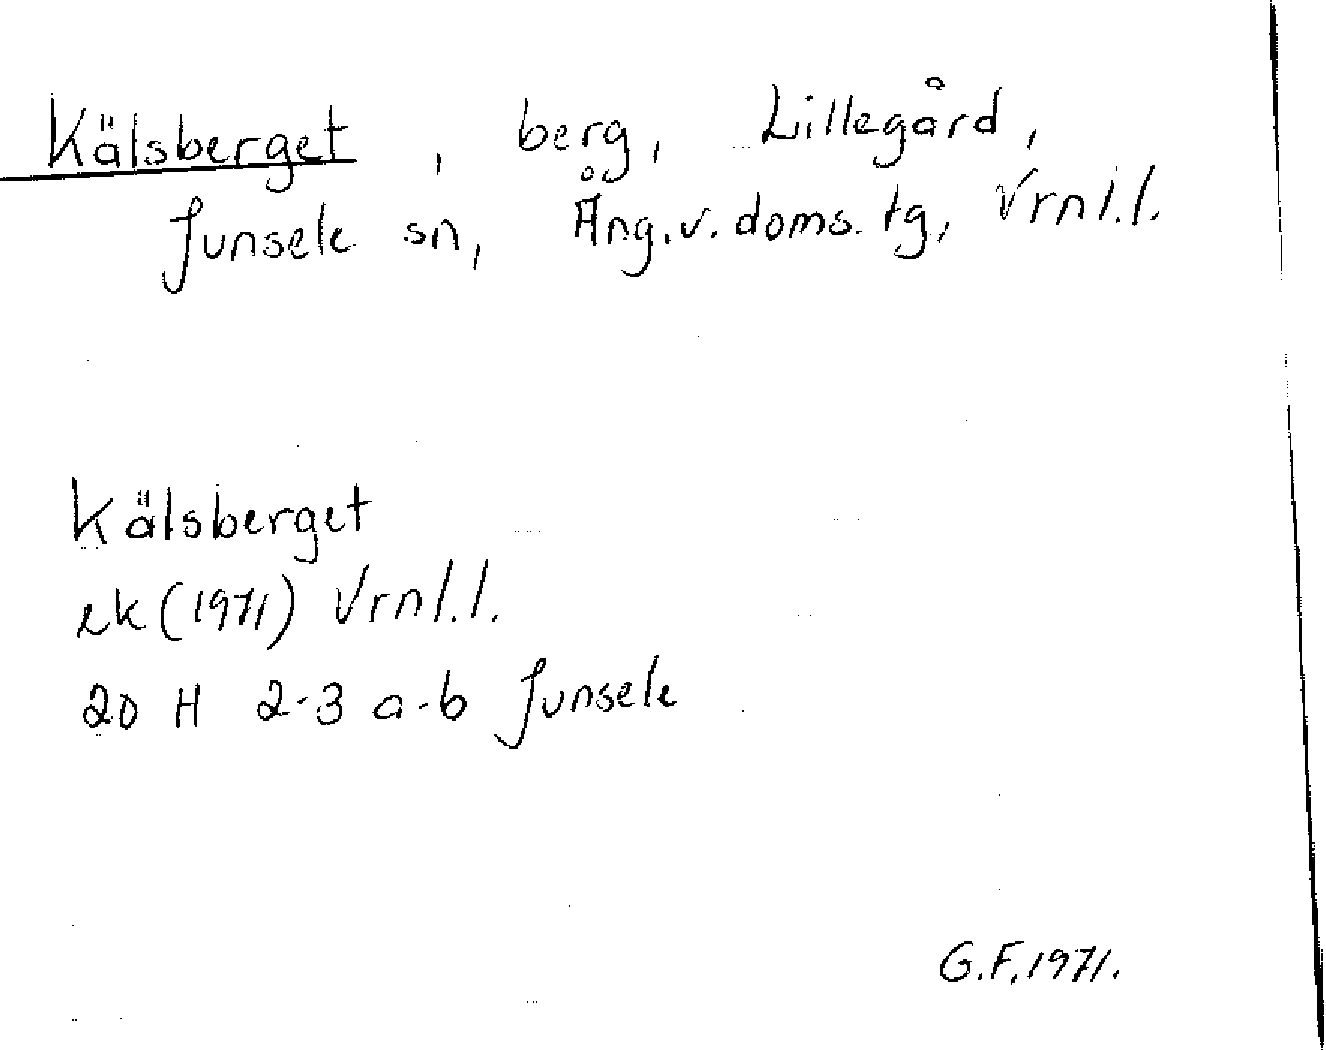 Kälsberget, berg, Lillegård,
Junsele sn, Ång.v. doms. tg, Vrnl.l.
Kälsberget
ek (1971) Vrnl.l.
20 H 2-3 a-b Junsele
G.F. 1971.